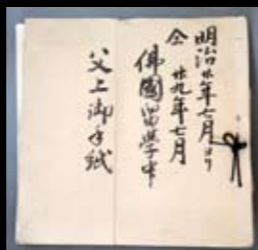 明治廿年七月ヨリ
仝 廿九年七月
佛國留學中
父上御手紙